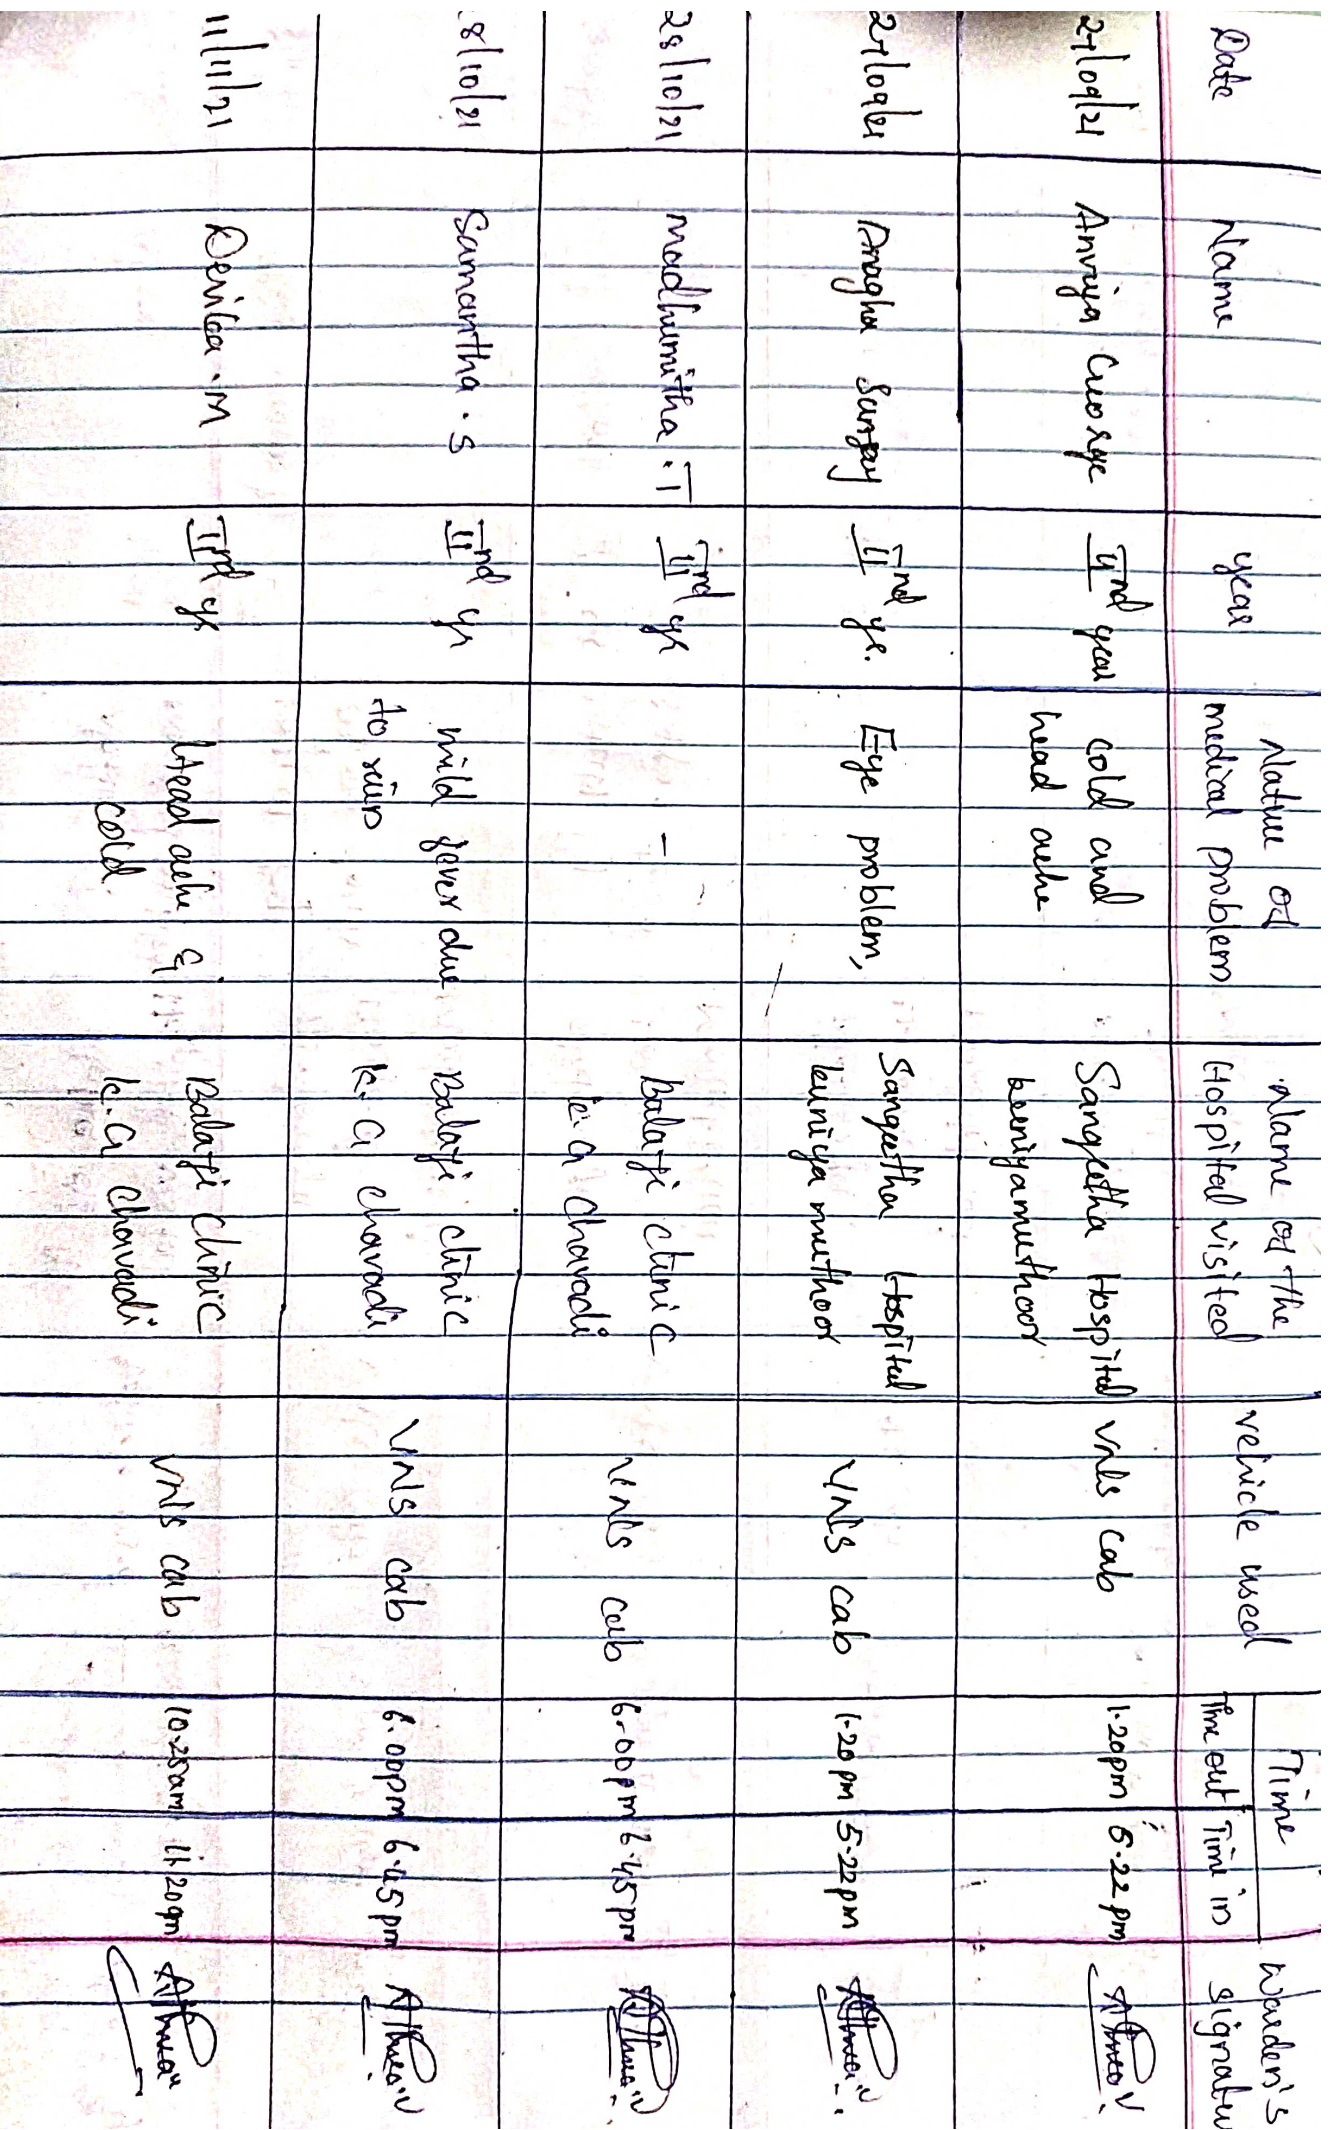 Date Name year Nature of medical problem Name of the Hospital visited vehicle used Time Time out Time in Warden's signature
27/09/21 Anvija George IInd year cold and head ache Sangeetha Hospital kuniyamuthoor vnls cab 1.20pm 5.22pm
27/09/21 Anagha Sanjay IInd yr. Eye problem, Sangeetha Hospital kuniyamuthoor vnls cab 1.20pm 5.22pm
28/10/21 Madhumitha.T IInd yr - Balaji clinic k.G Chavadi vnls cab 6.00pm 6.45pm
8/10/21 Samantha.S IInd yr mild fever due to Balaji clinic k.G chavadi vnls cab 6.00pm 6.45pm
11/11/21 Devikaa.M IInd yr Head ache & cold Balaji clinic k.G chavadi vnls cab 10.25am 11.20am